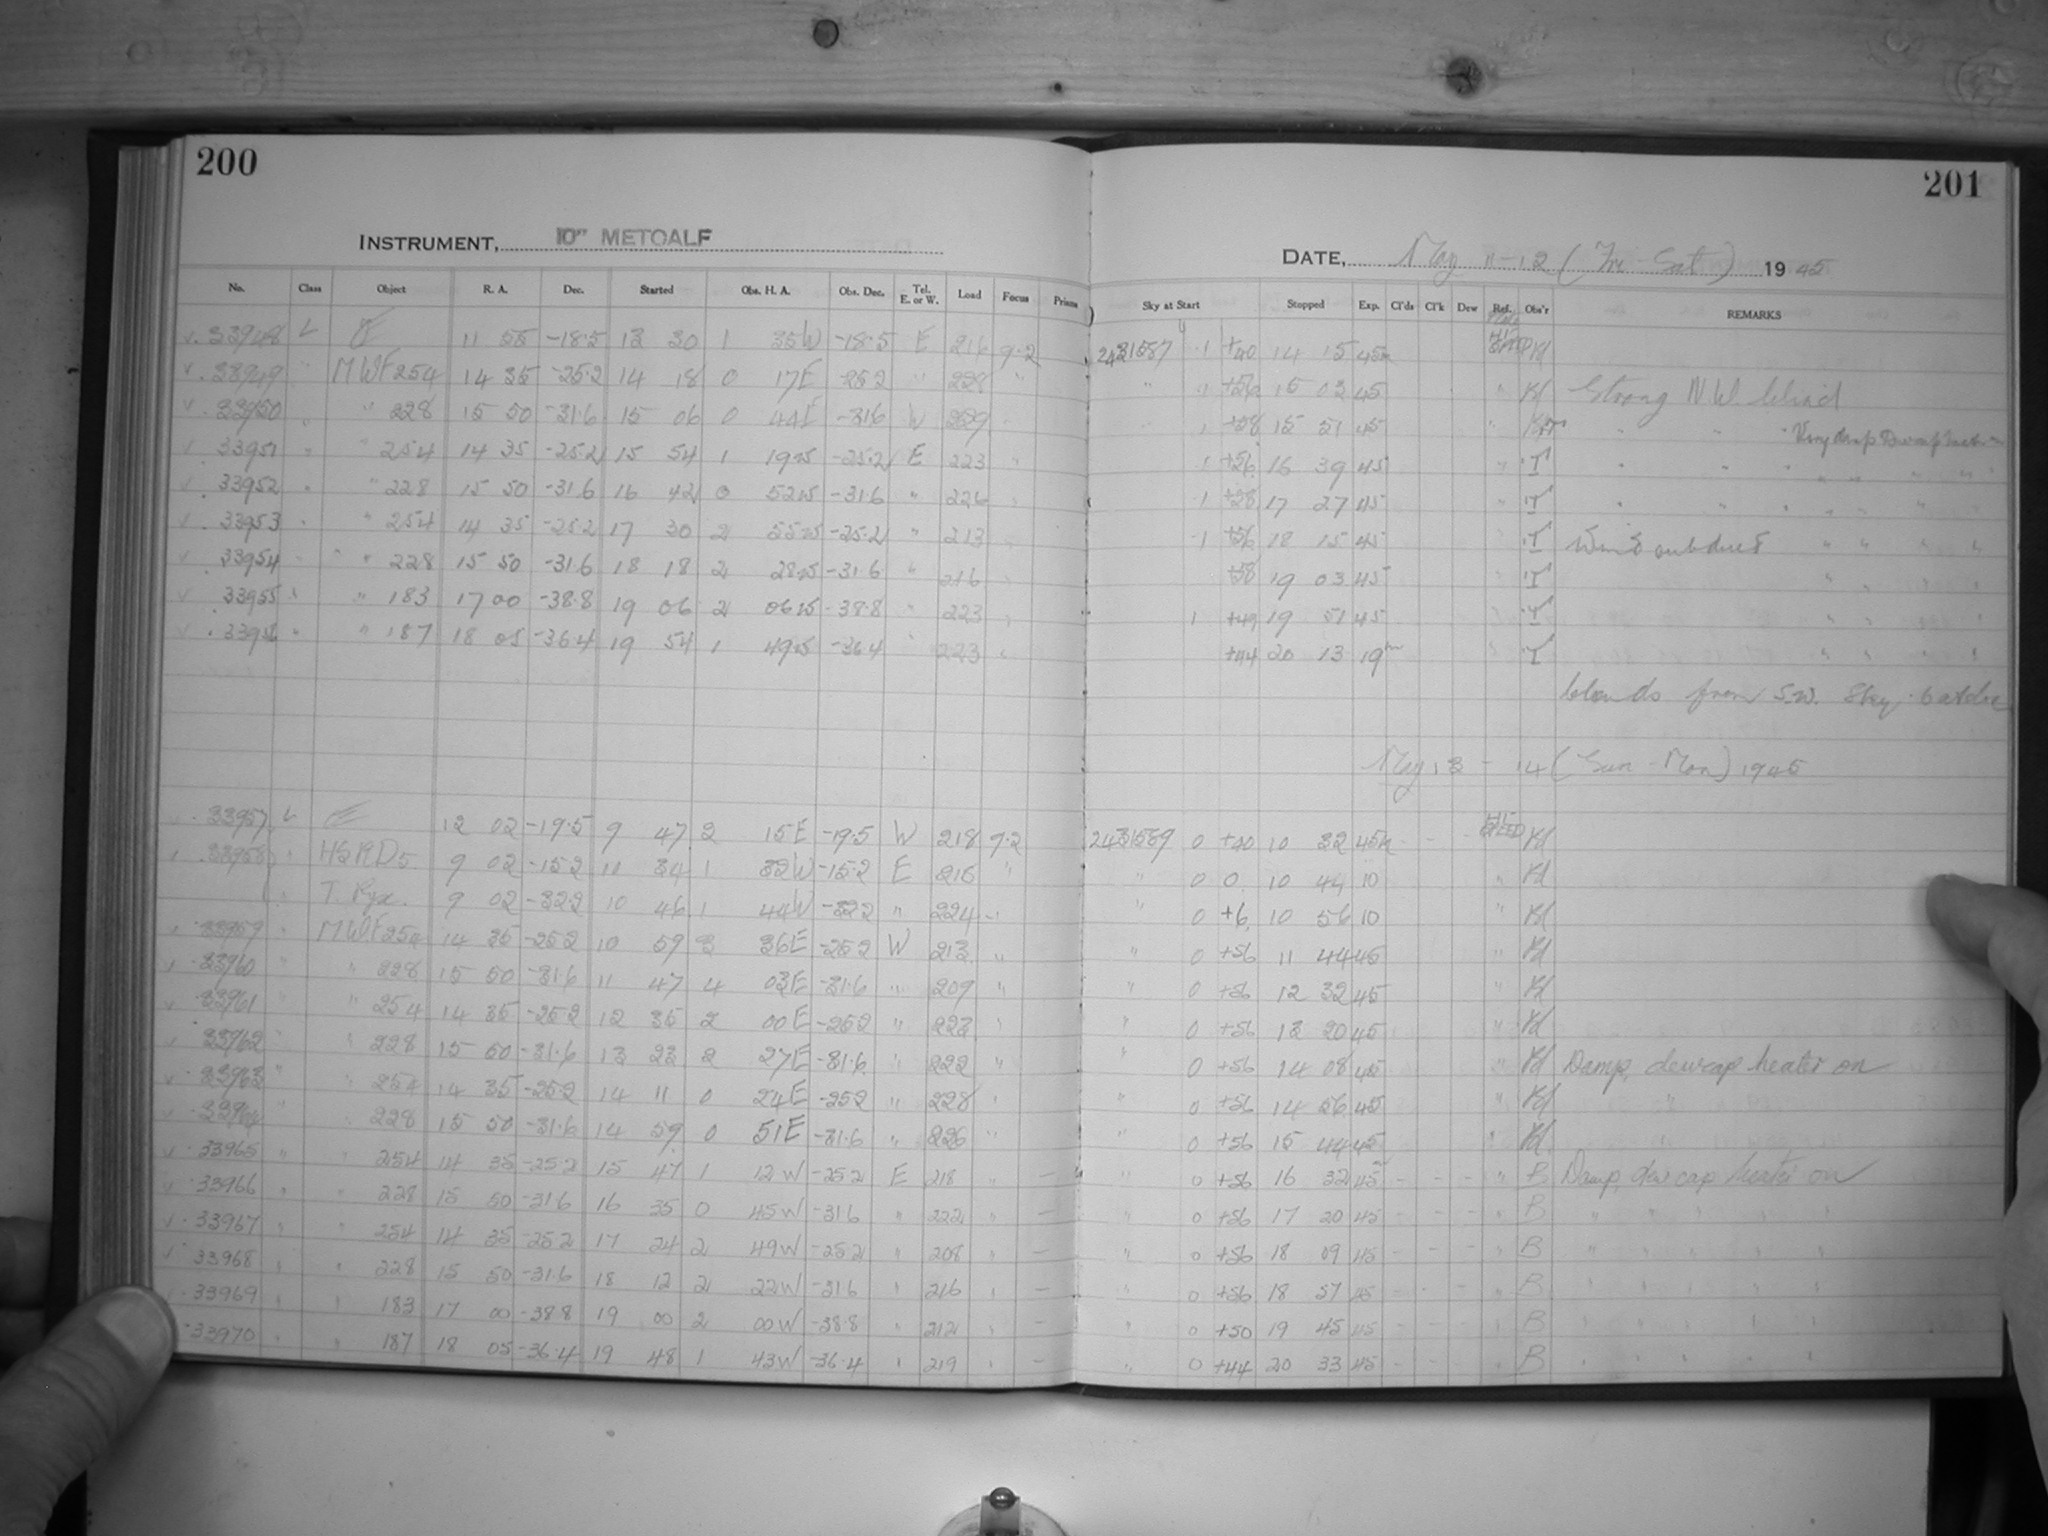 200
201
INSTRUMENT, 10" METCALF
DATE, May 11-12 (Fri-Sat) 1945
No. Class Object R. A. Dec. Started Obs. H. A. Obs. Dec. Tel. E. or W. Load Focus Prism Sky at Start Stopped Exp. Cl'ds Cl'k Dew Ref. Obs'r REMARKS
33948 L 11 55 -18.5 13 30 1 35W -18.5 E 216 9.2 2431587 1 +40 14 15 45 Kd
33949 " MWF254 14 35 -25.2 14 18 0 17E -25.2 " 228 " " 1 +56 15 03 45 " Kd Strong N.W. Wind
33950 " " 228 15 50 -31.6 15 06 0 44E -31.6 W 229 1 +58 15 51 45 "
33951 " " 254 14 35 -25.2 15 54 1 19W -25.2 E 223 " 1 +56 16 39 45 " T
33952 " " 228 15 50 -31.6 16 42 0 52W -31.6 " 226 " 1 +58 17 27 45 " T
33953 " " 254 14 35 -25.2 17 30 2 55W -25.2 " 213 " 1 +56 18 15 45 " T Wind subdued " " "
33954 " " 228 15 50 -31.6 18 18 2 28W -31.6 " 216 " +58 19 03 45 " T
33955 " " 183 17 00 -38.8 19 06 2 06W -38.8 " 223 " 1 +49 19 51 45 " T
33956 " " 187 18 05 -36.4 19 54 1 49W -36.4 " 223 " +44 20 13 19m " T
Clouds from S.W. Sky
May 13 - 14 (Sun - Mon) 1945
33957 L 12 02 -19.5 9 47 2 15E -19.5 W 218 9.2 2431589 0 +40 10 32 45 Kd
33958 " HSRD5 9 02 -15.2 10 34 1 32W -15.2 E 216 " " 0 0 10 44 10 " Kd
" T. Pyx. 9 02 -32.2 10 46 1 44W -32.2 " 224 " " 0 +6 10 56 10 " Kd
33959 " MWF254 14 35 -25.2 10 59 3 36E -25.2 W 213 " " 0 +56 11 44 45 " Kd
33960 " " 228 15 50 -31.6 11 47 4 03E -31.6 " 209 " " 0 +56 12 32 45 " Kd
33961 " " 254 14 35 -25.2 12 35 2 00E -25.2 " 223 " " 0 +56 13 20 45 " Kd
33962 " 228 15 50 -31.6 13 23 2 27E -31.6 " 222 " " 0 +56 14 08 45 " Kd Damp, dewcap heater on
33963 " " 254 14 35 -25.2 14 11 0 24E -25.2 " 228 " " 0 +56 14 56 45 " Kd "
33964 " " 228 15 50 -31.6 14 59 0 51E -31.6 " 226 " " 0 +56 15 44 45 " Kd
33965 " " 254 14 35 -25.2 15 47 1 12W -25.2 E 218 " - " 0 +56 16 32 45 - - - " B Damp, dew cap heater on
33966 " " 228 15 50 -31.6 16 35 0 45W -31.6 " 222 " - " 0 +56 17 20 45 - - - " B " " " "
33967 " " 254 14 35 -25.2 17 24 2 49W -25.2 " 208 " - " 0 +56 18 09 45 - - - " B " " " "
33968 " " 228 15 50 -31.6 18 12 2 22W -31.6 " 216 " - " 0 +56 18 57 45 - - - " B " " " "
33969 " " 183 17 00 -38.8 19 00 2 00W -38.8 " 212 " - " 0 +50 19 45 45 - - - " B " " " "
33970 " " 187 18 05 -36.4 19 48 1 43W -36.4 " 219 " - " 0 +44 20 33 45 - - - " B " " " "